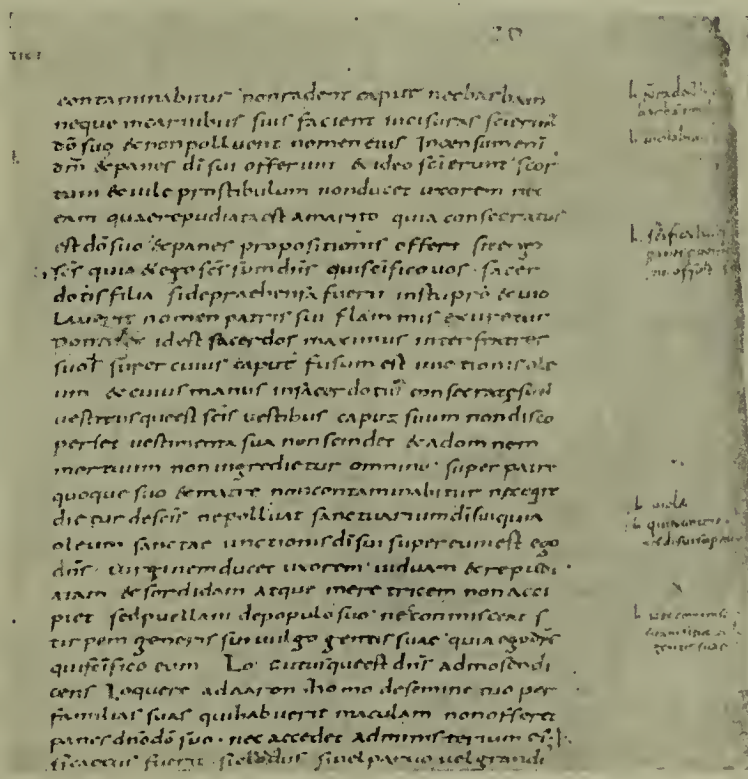 contaminabitur non radent caput nec barbam
neque in carnibus suis facient incisuras sci erunt
dō suo & non polluent nomen eius Incensum enim
dni & panes di sui offerunt & ideo sci erunt scor
tum & uile prostibulum non ducet uxorem nec
eam quae repudiata est a marito quia consecratus
est dō suo & panes propositionis offert sit ergo
scs quia & ego scs sum dns qui scifico uos sacer
dotis filia si depraehensa fuerit in stupro & uio
lauerit nomen patris sui flammis exuretur
pontifex id est sacerdos maximus inter fratres
suos super cuius caput fusum est unctionis ole
um & cuius manus in sacerdotiū consecrate sunt
uestitusque est scis uestibus caput suum non disco
periet uestimenta sua non scindet & ad omnem
mortuum non ingredietur omnino super patre
quoque suo & matre non contaminabitur nec egre
dietur de scis ne polluat sanctuarium di sui quia
oleum sanctae unctionis di sui super eum est ego
dns uirginem ducet uxorem uiduam & repudi
atam & sordidam atque meretricem non acci
piet sed puellam de populo suo ne commisceat s
tirpem generis sui uulgo gentis suae quia ego dns
qui scifico eum Locutusque est dns ad mosen di
cens Loquere ad aaron homo de semine tuo per
familias suas qui habuerit maculam non offeret
panes dō suo nec accedet ad ministerium ei;
si caecus fuerit si clodus si uel paruo uel grandi